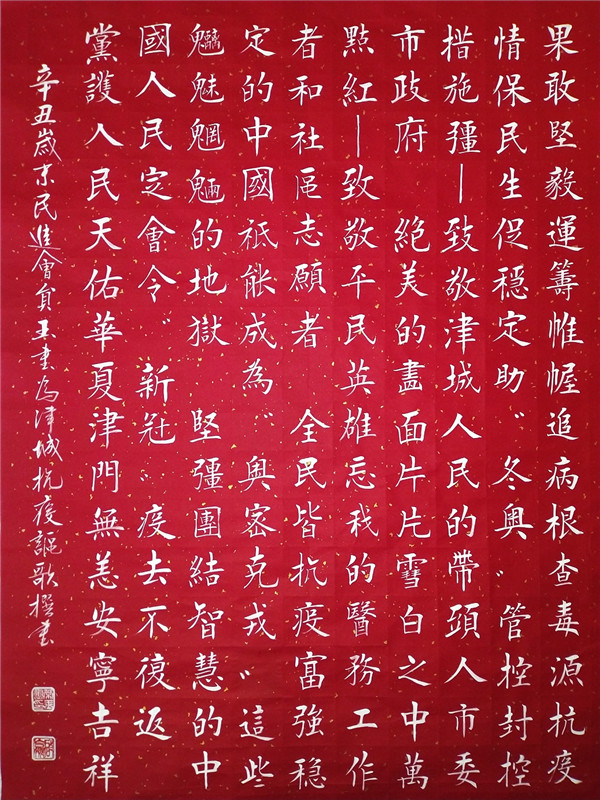 果敢堅毅運籌帷幄追病根查毒源抗疫
情保民生促穩定助“冬奥”管控封控
措施彊—致敬津城人民的帶頭人市委
市政府 絕美的畫面片片雪白之中萬
點紅—致敬平民英雄忘我的醫務工作
者和社區志願者 全民皆抗疫富強稳
定的中國祇能成為“奥密克戎”這些
魑魅魍魎的地獄 堅彊團結智慧的中
國人民定會令“新冠”疫去不復返
黨護人民天佑華夏津門無恙安寧吉祥
辛丑歲末民進會員玉書为津城抗疫謳歌撰書